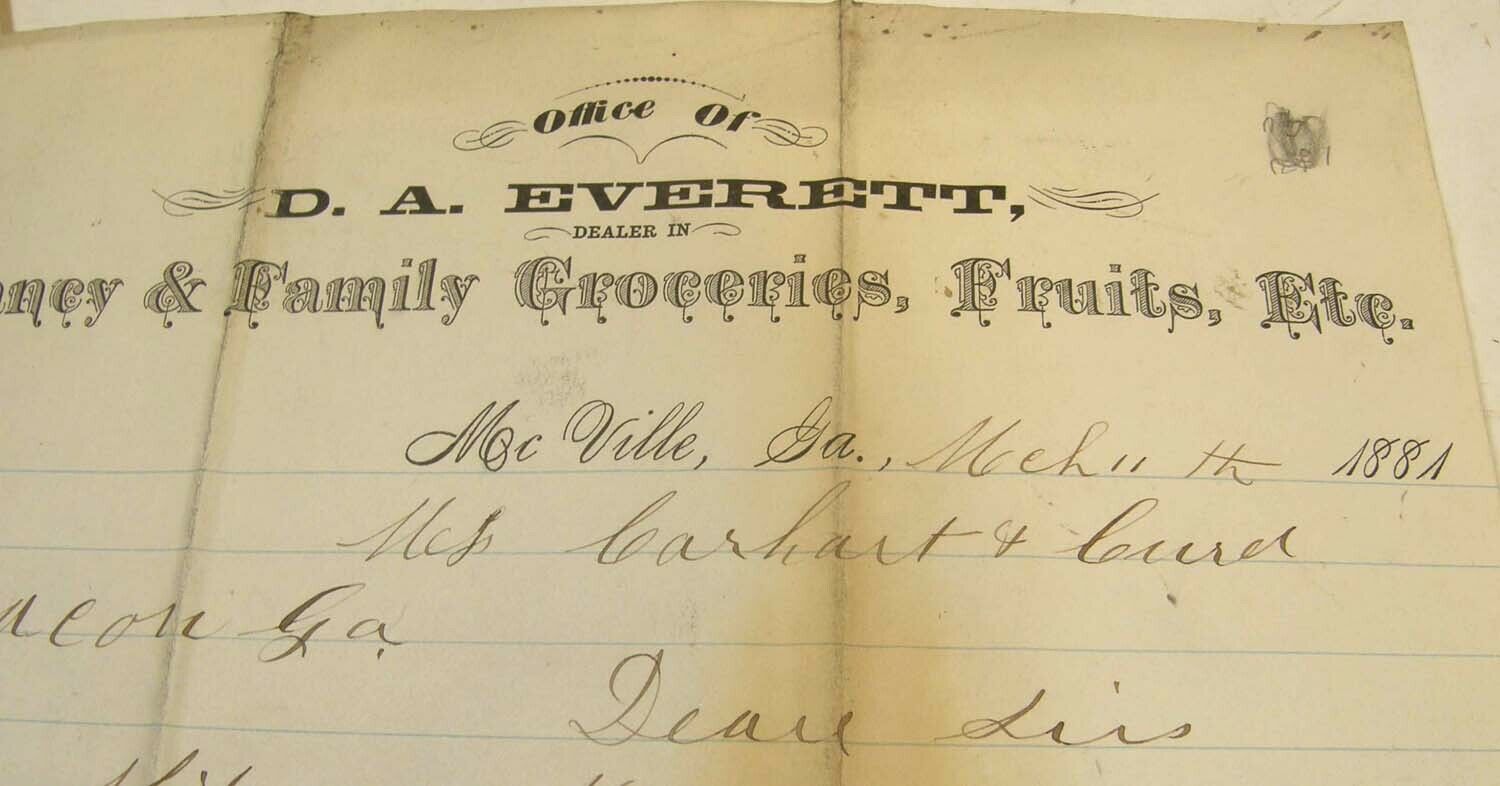 Office Of
D. A. EVERETT,
DEALER IN
ancy & Family Groceries, Fruits, Etc.
Mc Ville, Ga., Mch 11 th 1881
Mss Carhart & Curd
acon Ga.
Deare Sirs